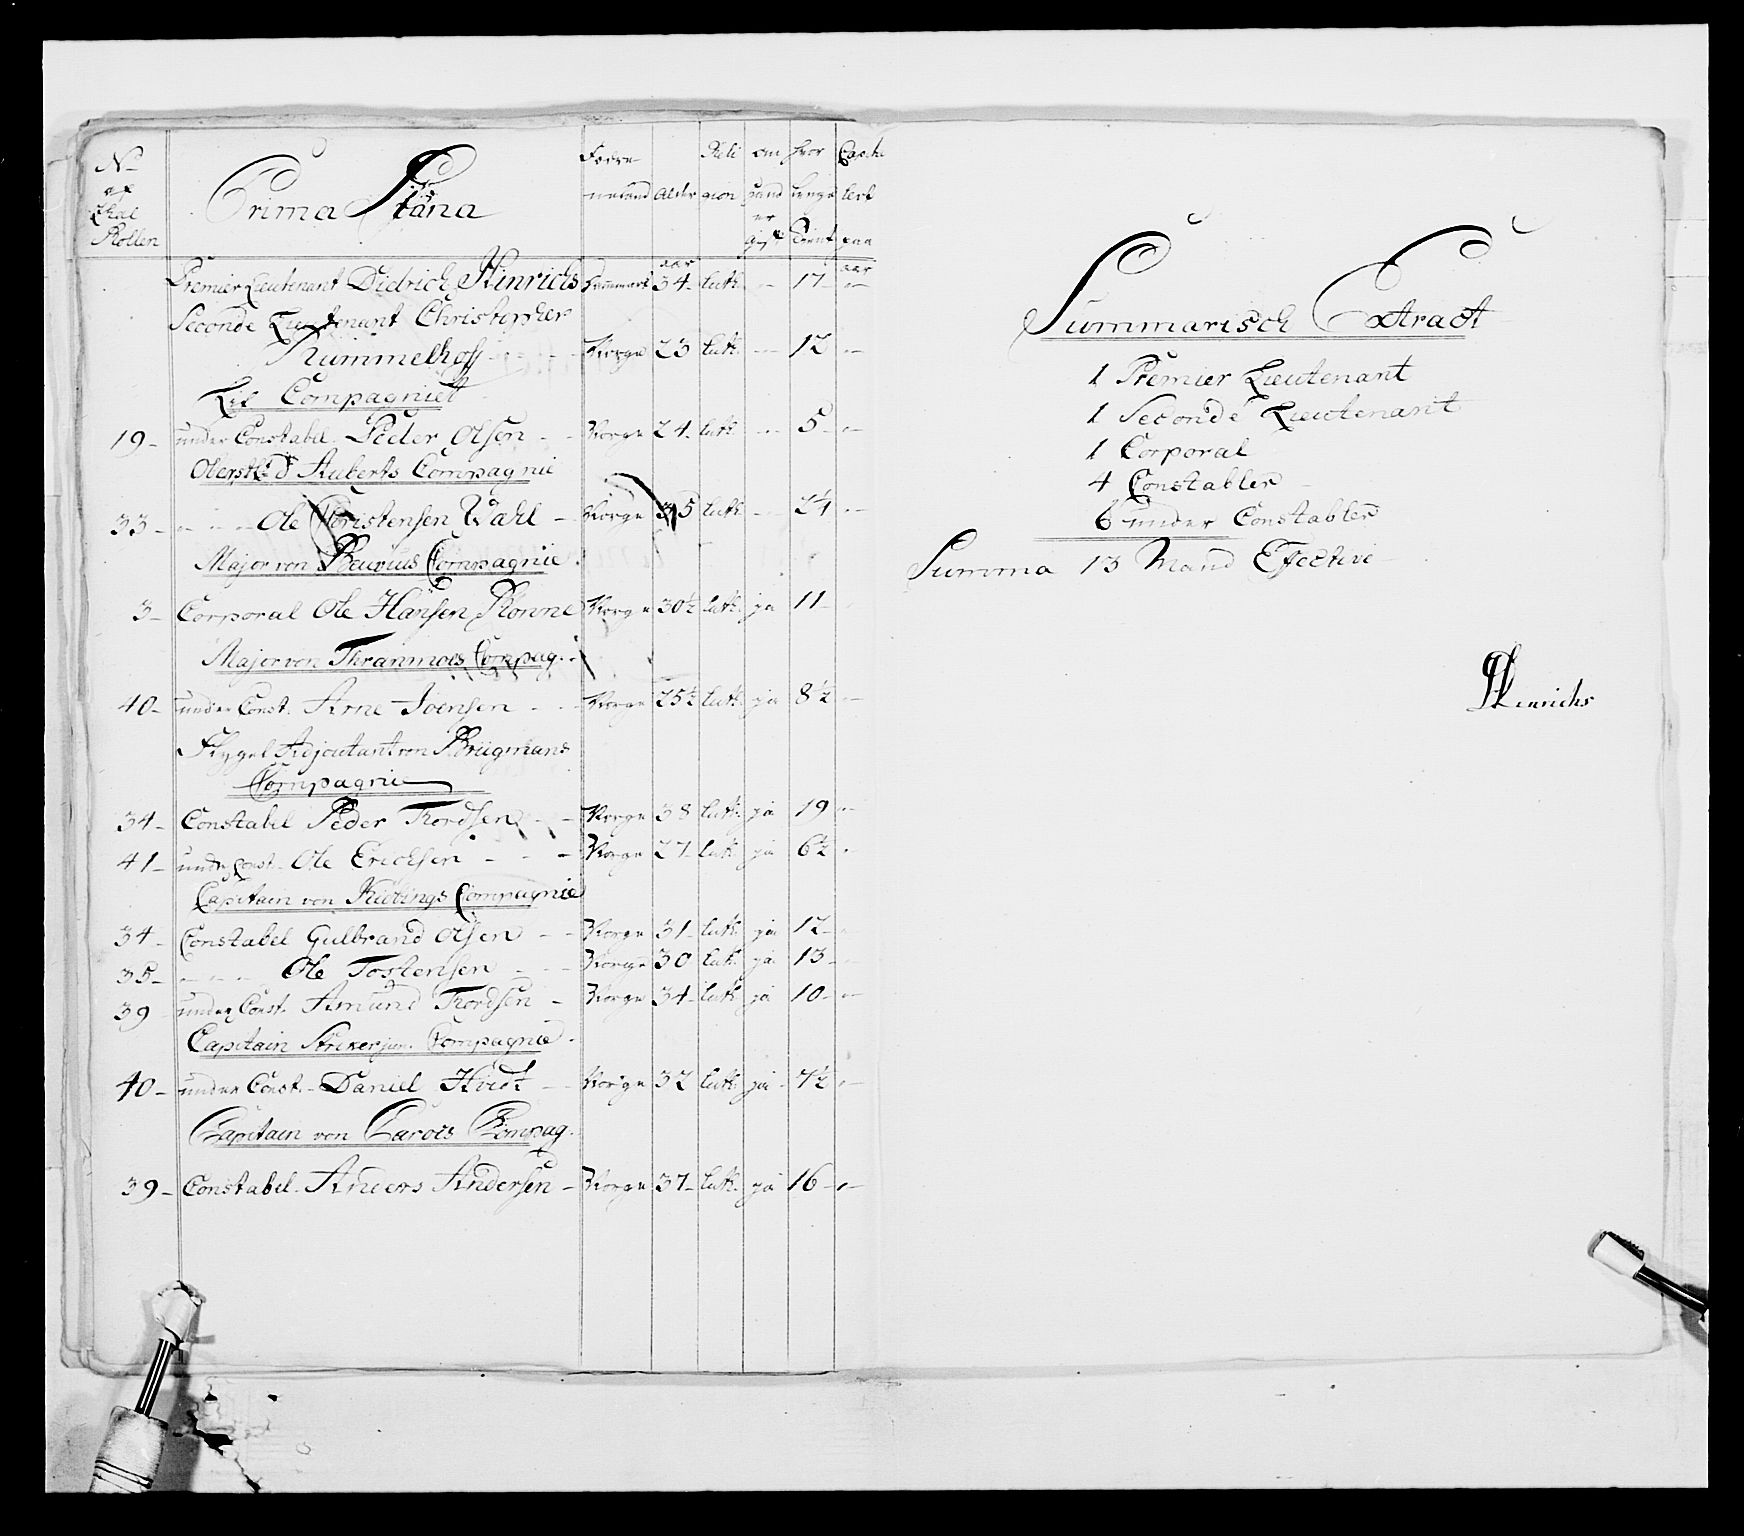 No
af
Rollen
Prima Plana
Fædre-
neland
Alder
Reli
gion
om
hand
er
gift
hvor
længe
tient
Capitu
lert
paa
Premier Lieutenant Didrich Hinrichs Danmark 34 aar luth. - 17 - aar
Seconde Lieutenant Christopher
Rummelhoff - - Norge 23 luth. - 12 -
Lif Compagniet
19 - under Constabel. Peder Olsen - - Norge 24 - luth. - 5 -
Oberstl: d' Auberts Compagnie
33 - - - - Ole Christensen Wahl - Norge 35 luth - 2½ -
Major von Compagnie.
3 - Corporal Ole Hansen Rønne Norge 30½ luth. ja 11 -
Major von Compag.
40 - under Const. Arne Joensen - - Norge 25½ luth. ja 8½ -
Flygel Adjoutant von Brügmans
Compagnie
34 - Constabel Peder Thordsen - - Norge 38 luth. ja 19 -
41 - under Const. Ole Erichsen - - - Norge 27 - luth ja 6½ -
Capitain von Compagnie
34 - Constabel Gulbrand Olsen - - Norge 31 - luth. ja 12 -
35 - - - - Ole Tostensen - - - Norge 30 luth. ja 13 -
39 - under Const. Amund Thordsen - Norge 34 - luth. ja 10 -
Capitain Striker jun. Compagnie.
40 - under Const. - Daniel Hvidt - - Norge 32 luth. ja - 7½ -
Capitain von Compag.
39 - Constabel. Anders Andersen - Norge 37 - luth. ja 16 -
Summarisch Extract
1 Premier Lieutenant
1 Seconde Lieutenant
1 Corporal
4 Constabler
6 under Constabler
Summa 13 Mand Effective
Hinrichs